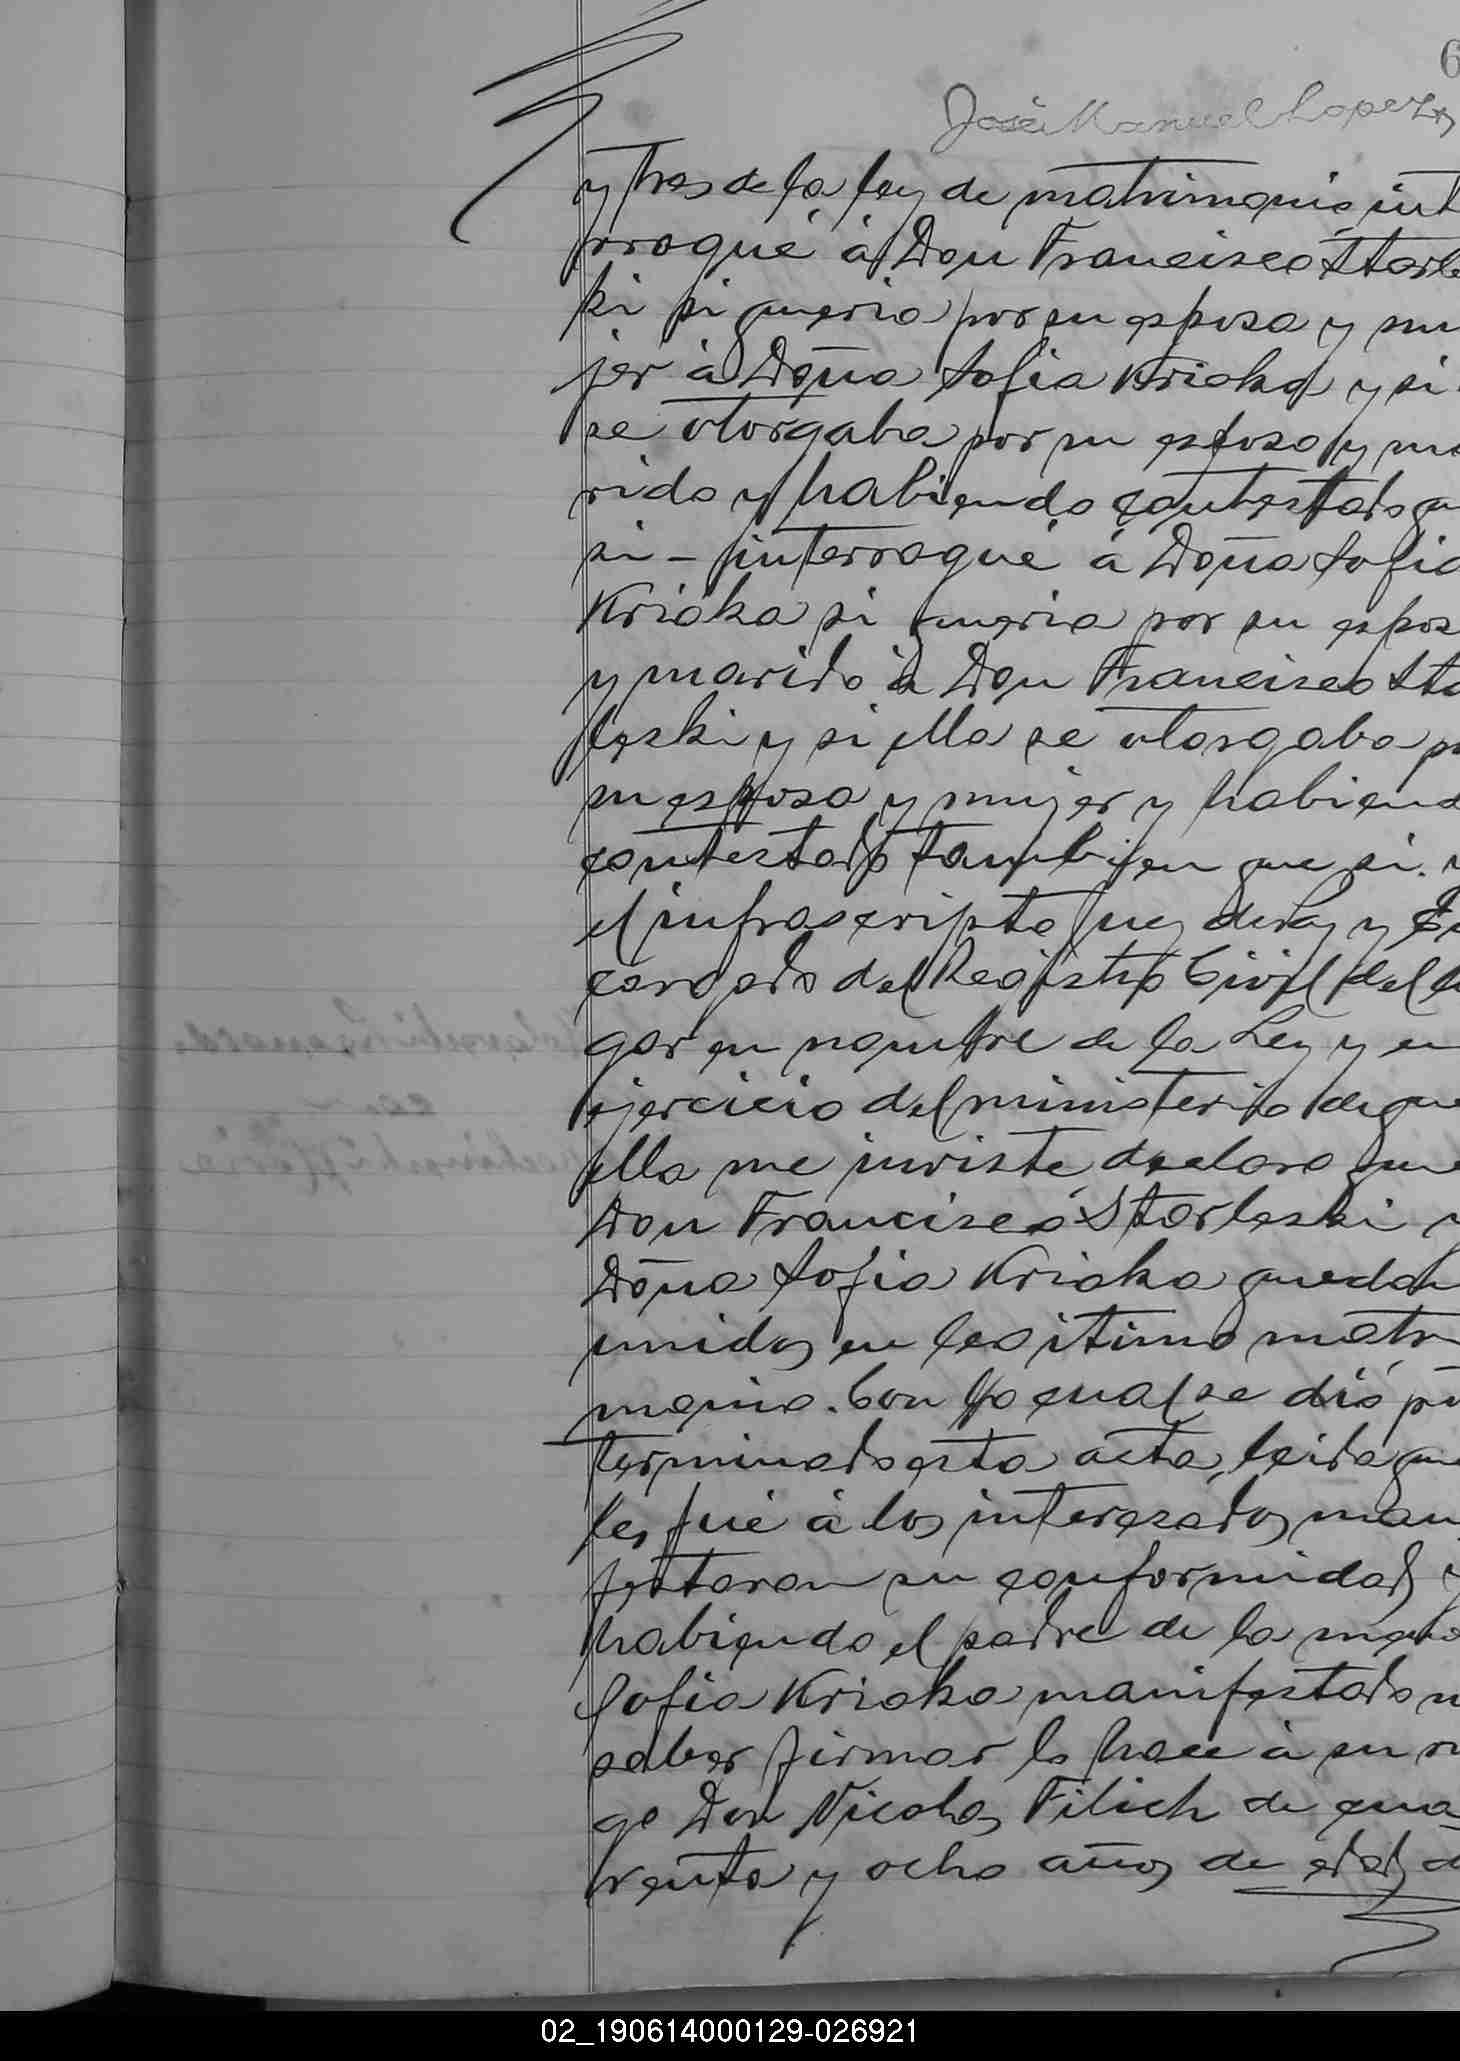 6
José Manuel Lopez
y tres de la ley de matrimonio int
rrogué á Don Francisco Starle
ki si queria por su esposa y mu
jer á Doña Sofia Krioka y si
se otorgaba por su esposo y ma
rido y habiendo contestado qu
si - interrogué á Doña Sofia
Krioka si queria por su espos
y marido á Don Francisco Sta
leski y si ella se otorgaba po
su esposa y mujer y habiend
contestado tambien que si. y
el infrascripto Juez de Paz y En
cargado del Registro Civil del lu
gar en nombre de la Ley y en
ejercicio del ministerio de que
ella me inviste, declaro que
Don Francisco Starleski y
Doña Sofia Krioka quedan
unidos en legitimo matri
monio. Con lo cual se dió por
terminado esta acta, leida que
les fué á los interesados, mani
festaron su conformidad y
habiendo el padre de la meno
Sofia Krioka manifestado n
saber firmar lo hace á su ru
go Don Nicolas Filich de cua
renta y ocho años de edad d
02_190614000129-026921